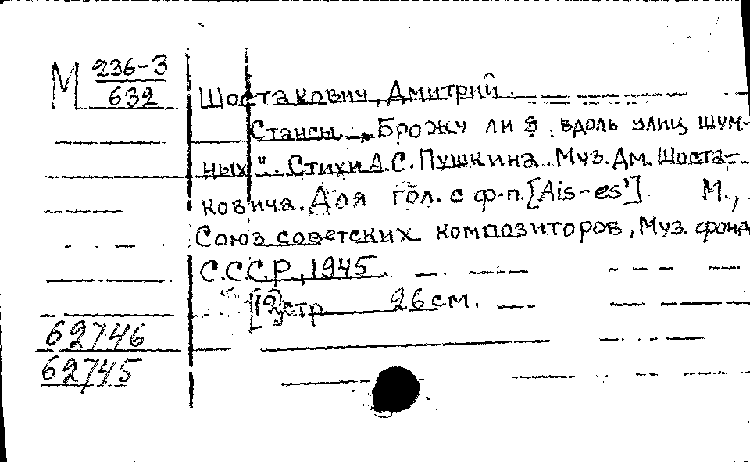 М 236-3
632
Шостакович, Дмитрий.
Стансы. „Брожу ли я вдоль улиц шум-
ных". Стихи А.С. Пушкина. Муз. Дм. Шоста-
ковича. Для гол. с ф-п. [Ais-es'] М.,
Союз советских композиторов, Муз. фонд
С.С.С.Р., 1945.
[12] стр 26 см.
62746
62745